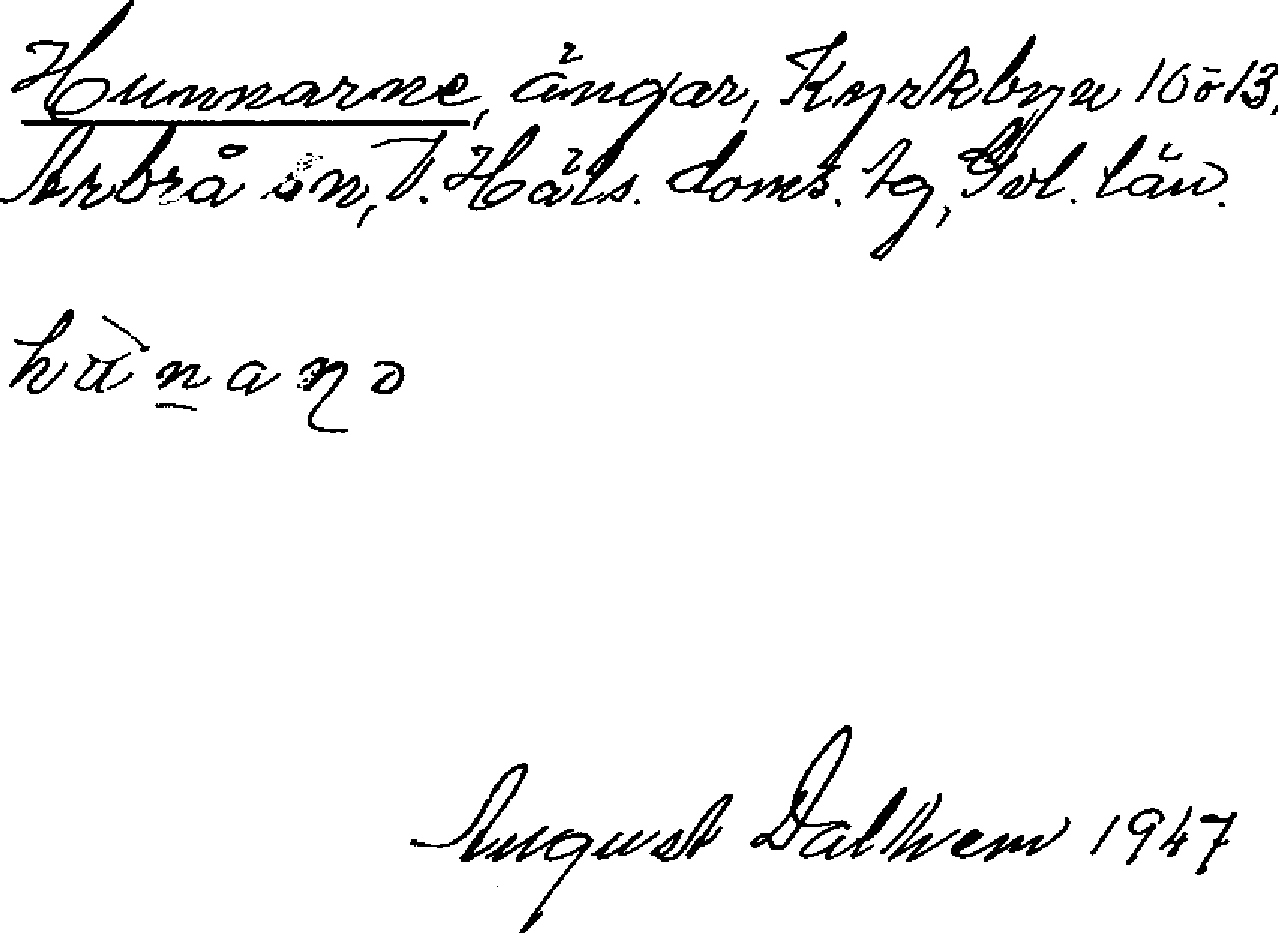 Hunnarne, ängar, Kyrkbyn 10 o 13,
Arbrå sn, V. Häls. doms. tg, Gvl. län.
hùnaŋə
August Dalhem 1947